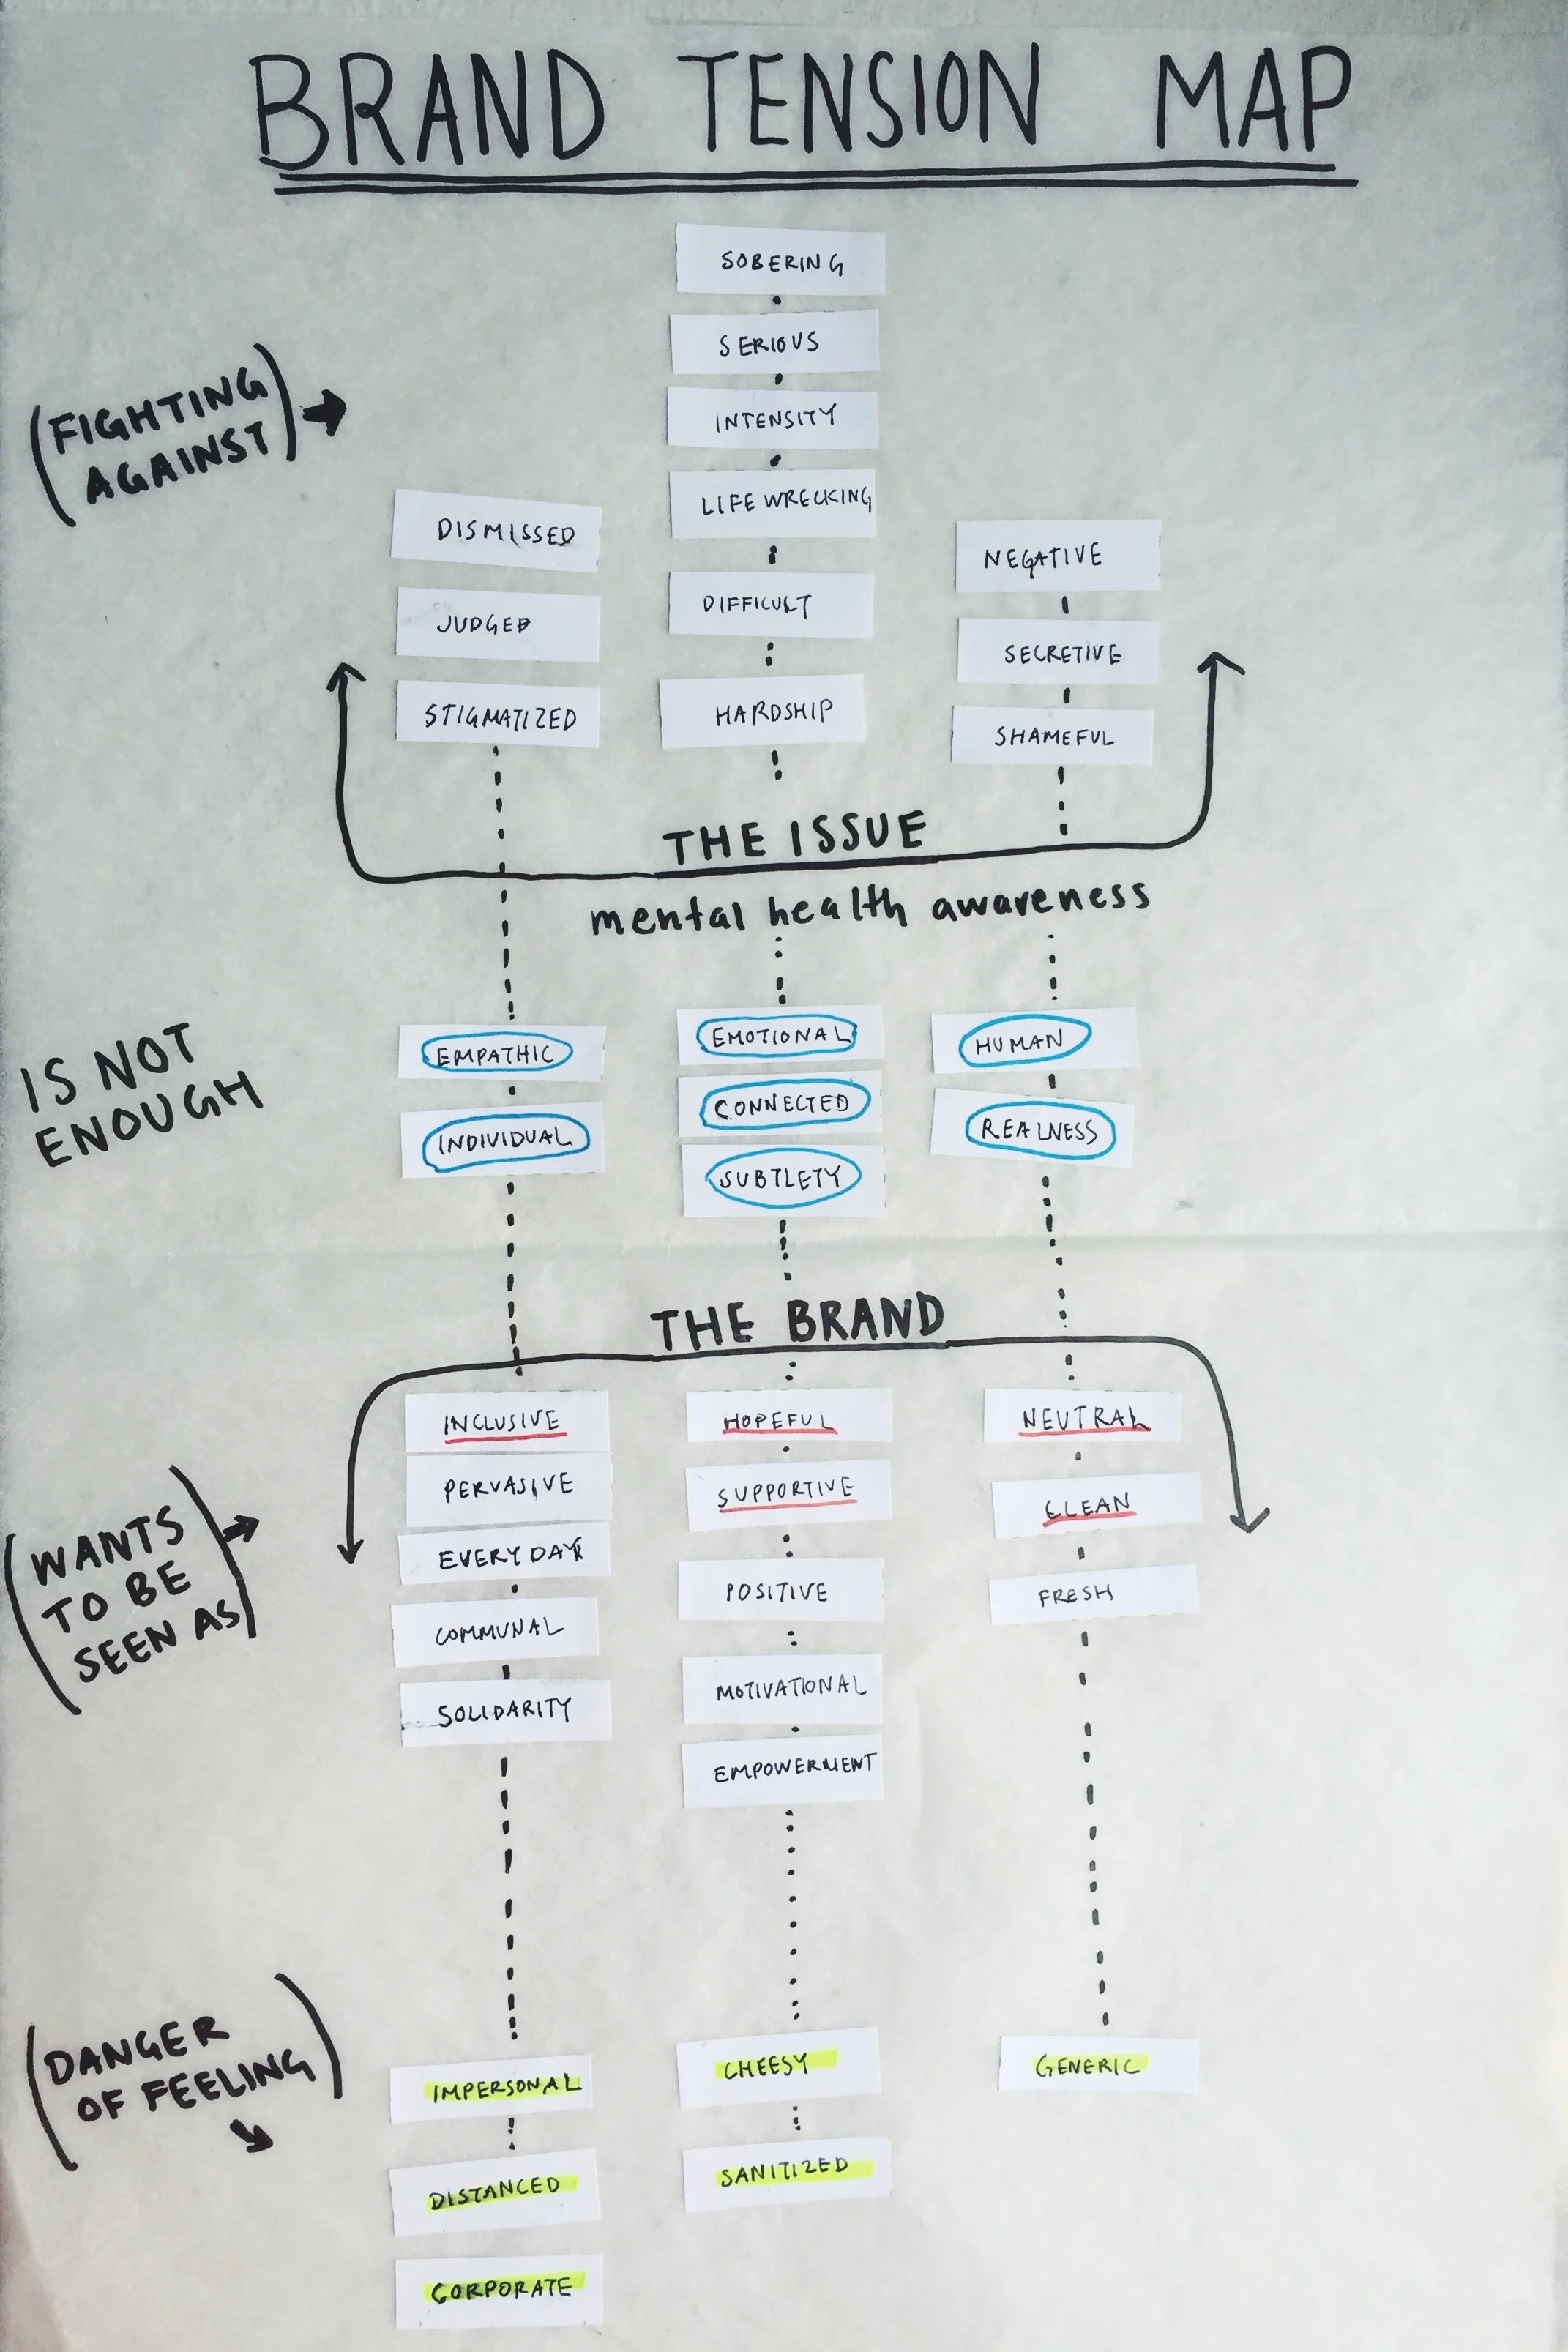 BRAND TENSION MAP
SOBERING
SERIOUS
(FIGHTING
AGAINST)
INTENSITY
LIFE WRECKING
DISMISSED
NEGATIVE
DIFFICULT
JUDGED
SECRETIVE
STIGMATIZED
HARDSHIP
SHAMEFUL
THE ISSUE
mental health awareness
IS NOT
ENOUGH
EMPATHIC
EMOTIONAL
HUMAN
INDIVIDUAL
CONNECTED
REALNESS
SUBTLETY
THE BRAND
INCLUSIVE
HOPEFUL
NEUTRAL
PERVASIVE
SUPPORTIVE
CLEAN
(WANTS
TO BE
SEEN AS)
EVERYDAY
POSITIVE
FRESH
COMMUNAL
MOTIVATIONAL
SOLIDARITY
EMPOWERMENT
(DANGER
OF FEELING)
IMPERSONAL
CHEESY
GENERIC
DISTANCED
SANITIZED
CORPORATE